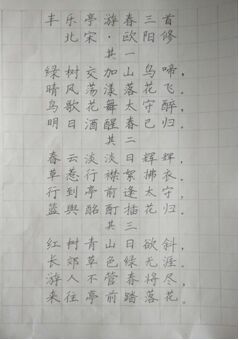 丰乐亭游春三首
北宋·欧阳修
其一
绿树交加山鸟啼，
晴风荡漾落花飞。
鸟歌花舞太守醉，
明日酒醒春已归。
其二
春云淡淡日辉辉，
草惹行襟絮拂衣。
行到亭前逢太守，
篮舆酩酊插花归。
其三
红树青山日欲斜，
长郊草色绿无涯。
游人不管春将尽，
来往亭前踏落花。